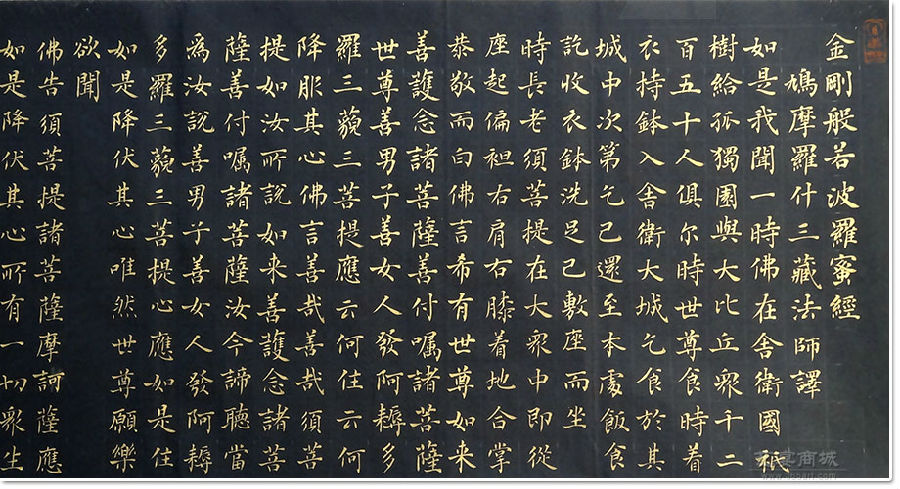 金剛般若波羅蜜經
鳩摩羅什三藏法師譯
如是我聞一時佛在舍衛國祇
樹給孤獨園與大比丘眾千二
百五十人俱尔時世尊食時着
衣持鉢入舍衛大城乞食於其
城中次第乞已還至本處飯食
訖收衣鉢洗足已敷座而坐
時長老須菩提在大眾中即從
座起偏袒右肩右膝着地合掌
恭敬而白佛言希有世尊如来
善護念諸菩薩善付囑諸菩薩
世尊善男子善女人發阿耨多
羅三藐三菩提應云何住云何
降服其心佛言善哉善哉須菩
提如汝所說如来善護念諸菩
薩善付囑諸菩薩汝今諦聽當
為汝說善男子善女人發阿耨
多羅三藐三菩提心應如是住
如是降伏其心唯然世尊願樂
欲聞
佛告須菩提諸菩薩摩訶薩應
如是降伏其心所有一切眾生
商城